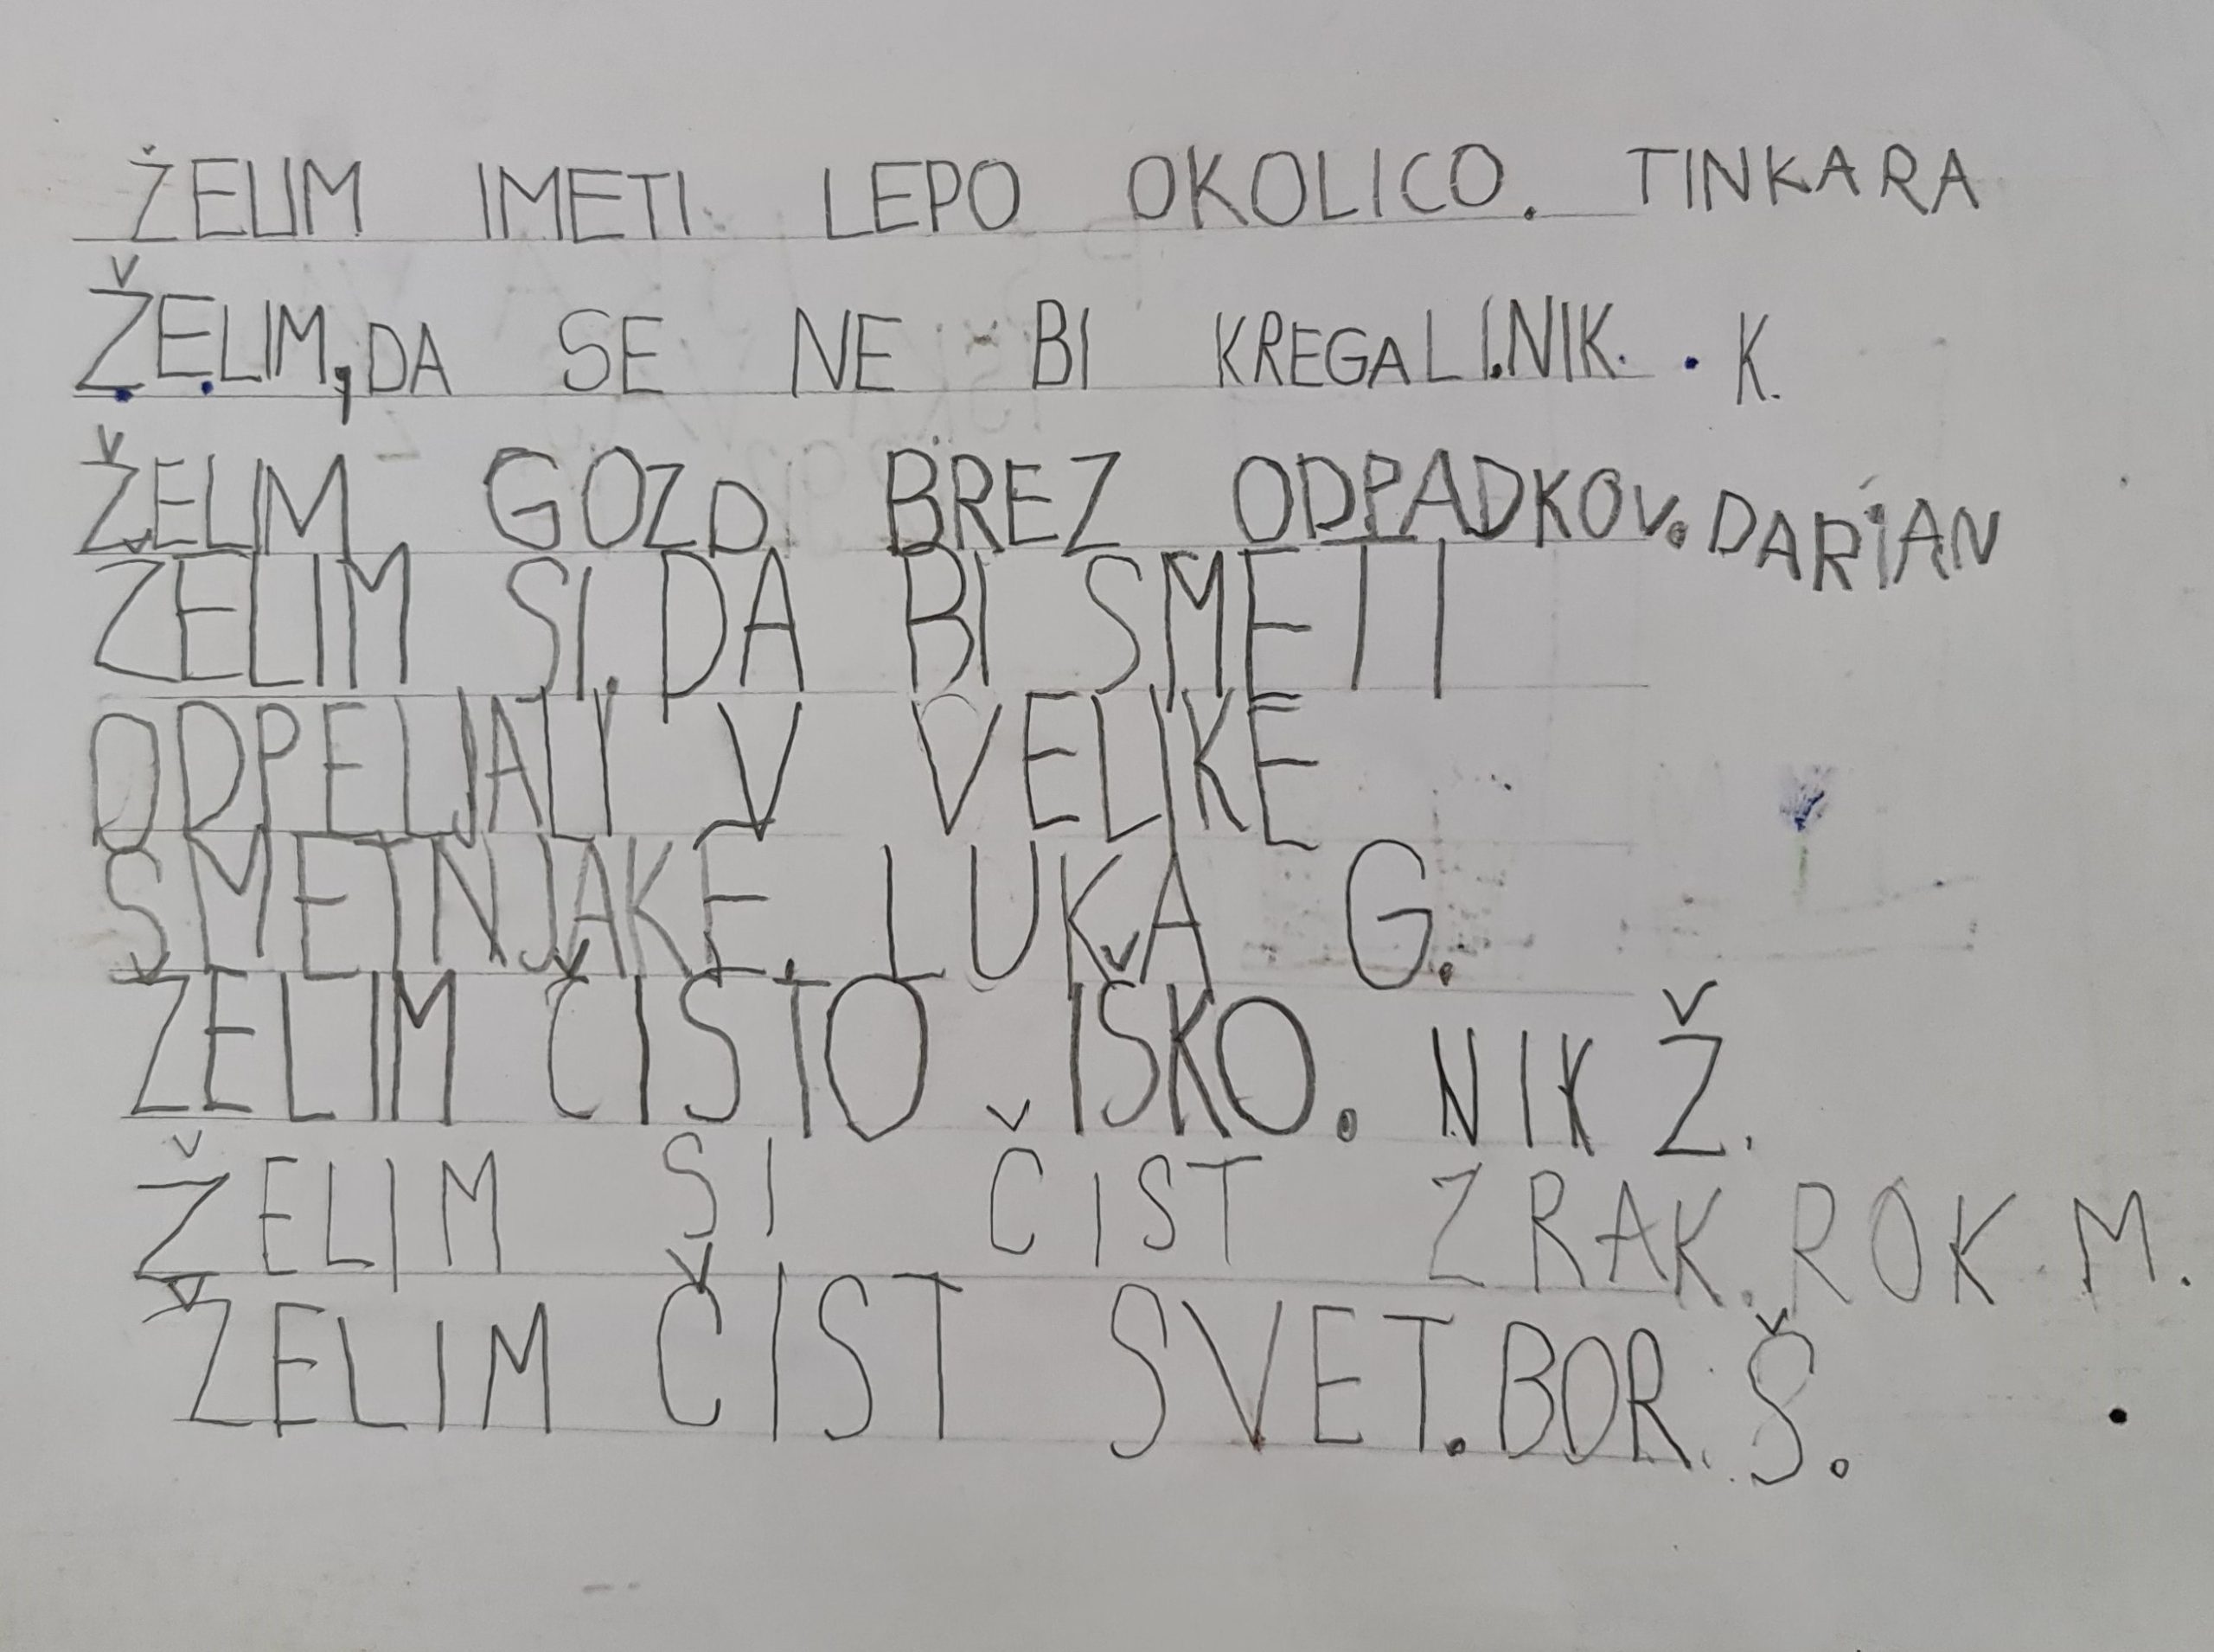 ŽELIM IMETI LEPO OKOLICO. TINKARA
ŽELIM, DA SE NE BI KREGALI. NIK. K.
ŽELIM GOZD BREZ ODPADKOV. DARIAN
ŽELIM SI, DA BI SMETI
ODPELJALI V VELIKE
SMETNJAKE. LUKA G.
ŽELIM ČISTO IŠKO. NIK Ž.
ŽELIM SI ČIST ZRAK. ROK M.
ŽELIM ČIST SVET. BOR Š.